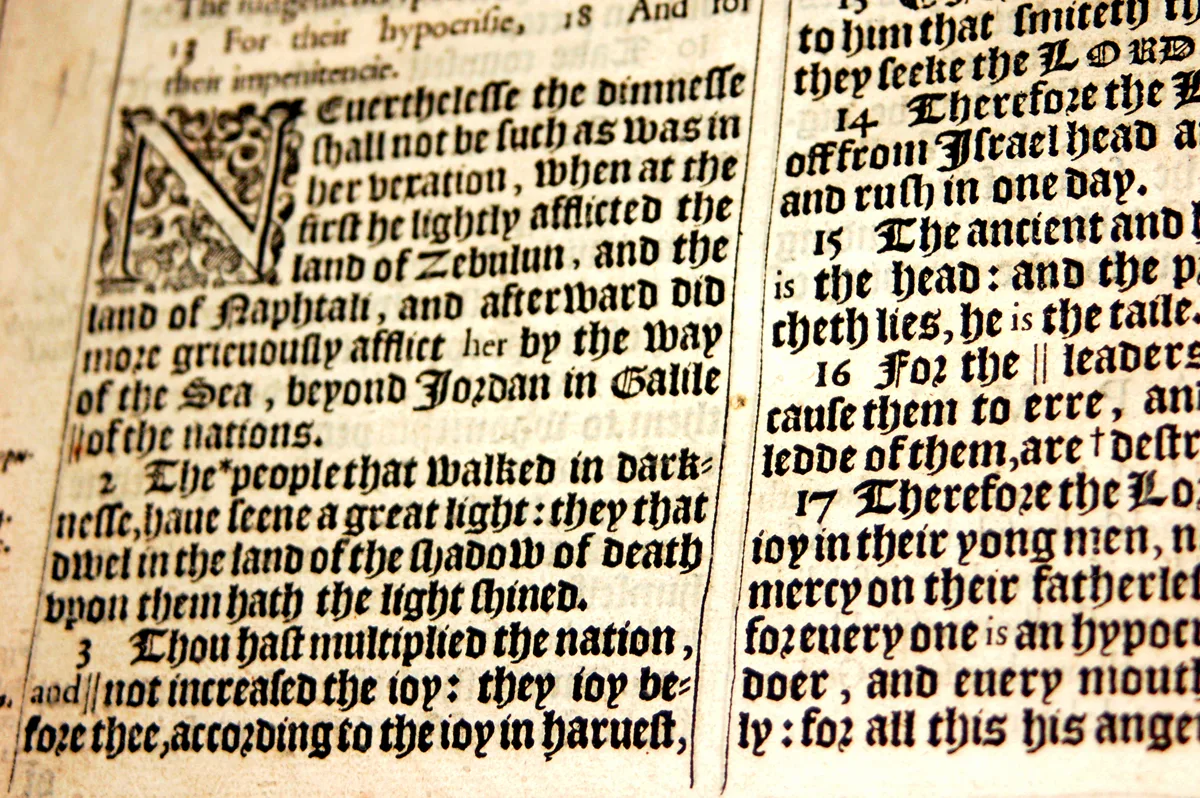 13 For their hypocrisie, 18 And for
their impenitencie.
NEuerthelesse the dimnesse
shall not be such as was in
her vexation, when at the
first he lightly afflicted the
land of Zebulun, and the
land of Naphtali, and afterward did
more grieuously afflict her by the way
of the Sea, beyond Jordan in Galile
||of the nations.
2 The *people that walked in dark-
nesse, haue seene a great light: they that
dwel in the land of the shadow of death
vpon them hath the light shined.
3 Thou hast multiplied the nation,
and ||not increased the ioy: they ioy be-
fore thee, according to the ioy in haruest,
to him that smiteth
they seeke the LORD
14 Therefore the
off from Israel head
and rush in one day.
15 The ancient and
is the head: and the
cheth lies, he is the taile.
16 For the || leaders
cause them to erre, and
ledde of them, are † destr
17 Therefore the Lo
ioy in their yong men, n
mercy on their fatherles
for euery one is an hypocr
doer, and euery mouth
ly: for all this his anger